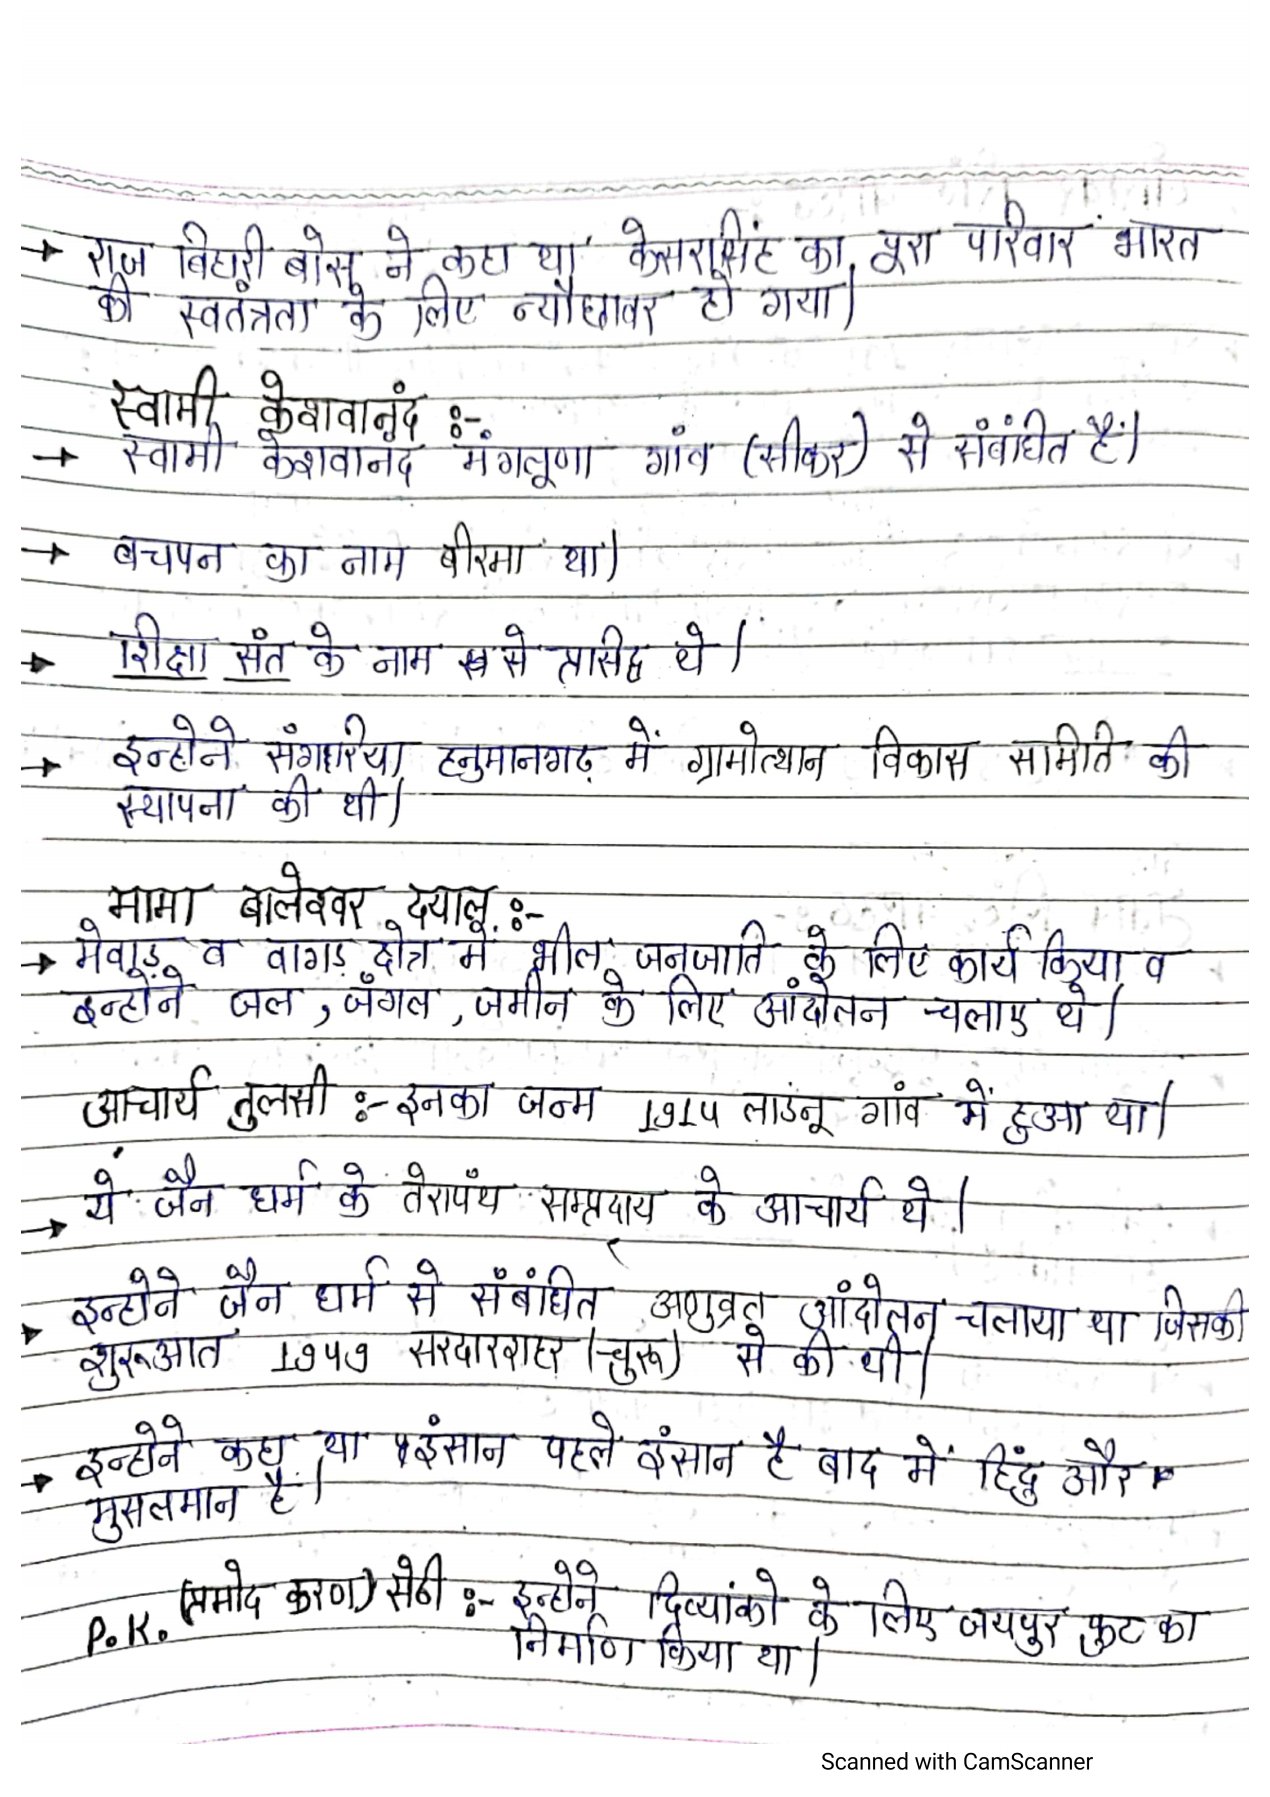 → राज बिहारी बोस ने कहा था केसरसिंह का पूरा परिवार भारत
की स्वतंत्रता के लिए न्यौछावर हो गया।
स्वामी केशवानंद :-
→ स्वामी केशवानंद मंगलूणा गांव (सीकर) से संबंधित हैं।
→ बचपन का नाम बीरमा था।
→ शिक्षा संत के नाम से प्रसिद्ध थे।
→ इन्होने संगहरिया हनुमानगढ़ में ग्रामोत्थान विकास समिति की
स्थापना की थी।
मामा बालेश्वर दयालू :-
→ मेवाड़ व वागड़ क्षेत्र में भील जनजाति के लिए कार्य किया व
इन्होंने जल, जंगल, जमीन के लिए आंदोलन चलाए थे।
आचार्य तुलसी :- इनका जन्म 1914 लाडनू गांव में हुआ था।
→ ये जैन धर्म के तेरापंथ सम्प्रदाय के आचार्य थे।
→ इन्होने जैन धर्म से संबंधित अणुव्रत आंदोलन चलाया था जिसकी
शुरूआत 1949 सरदारशहर (चुरू) से की थी।
→ इन्होने कहा था इंसान पहले इंसान है बाद में हिंदु और
मुसलमान है।
P.K. (प्रमोद करण) सेठी :- इन्होने दिव्यांको के लिए जयपुर फुट का
निर्माण किया था।
Scanned with CamScanner